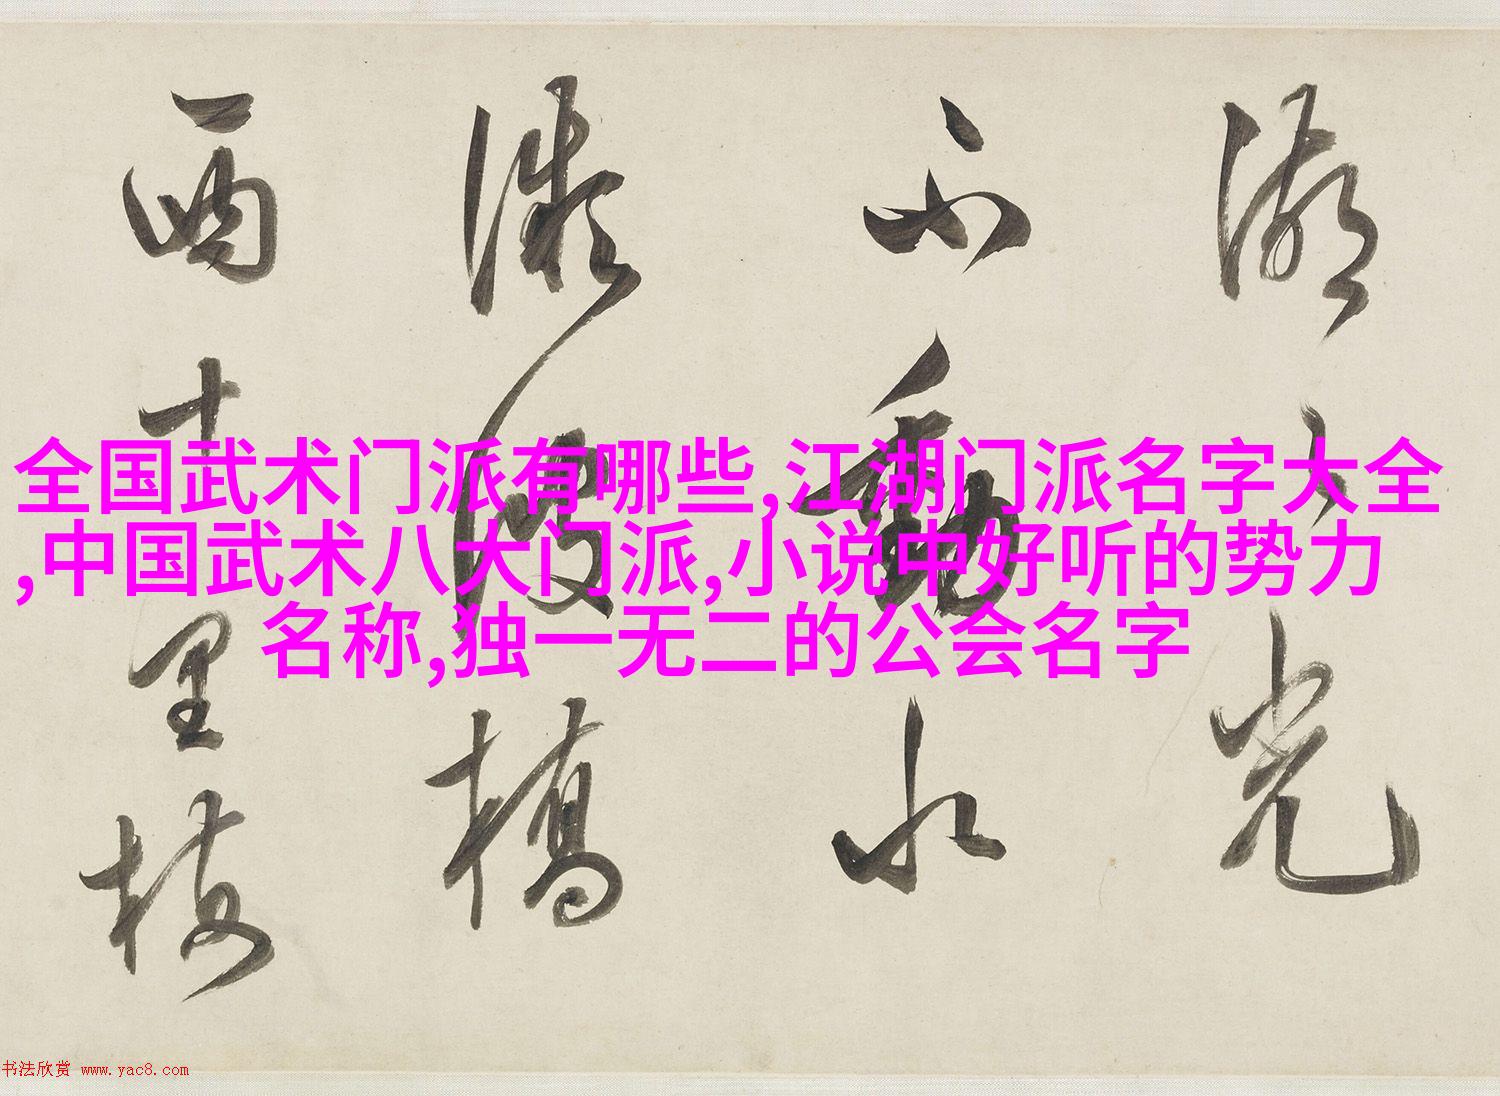 全国武术门派有哪些,江湖门派名字大全
,中国武术八大门派,小说中好听的势力
名称,独一无二的公会名字
湖光
不動水
橋
西十里梅
书法欣赏 www.yac8.com